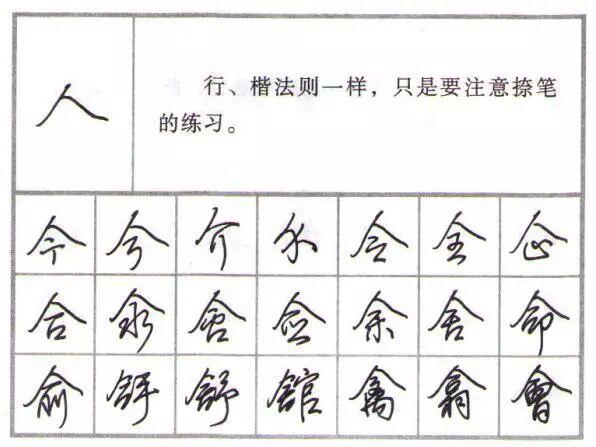 人
行、楷法则一样，只是要注意捺笔
的练习。
今 兮 介 令 全 企
合 余 舍 命
俞 舒 館 禽 翕 會